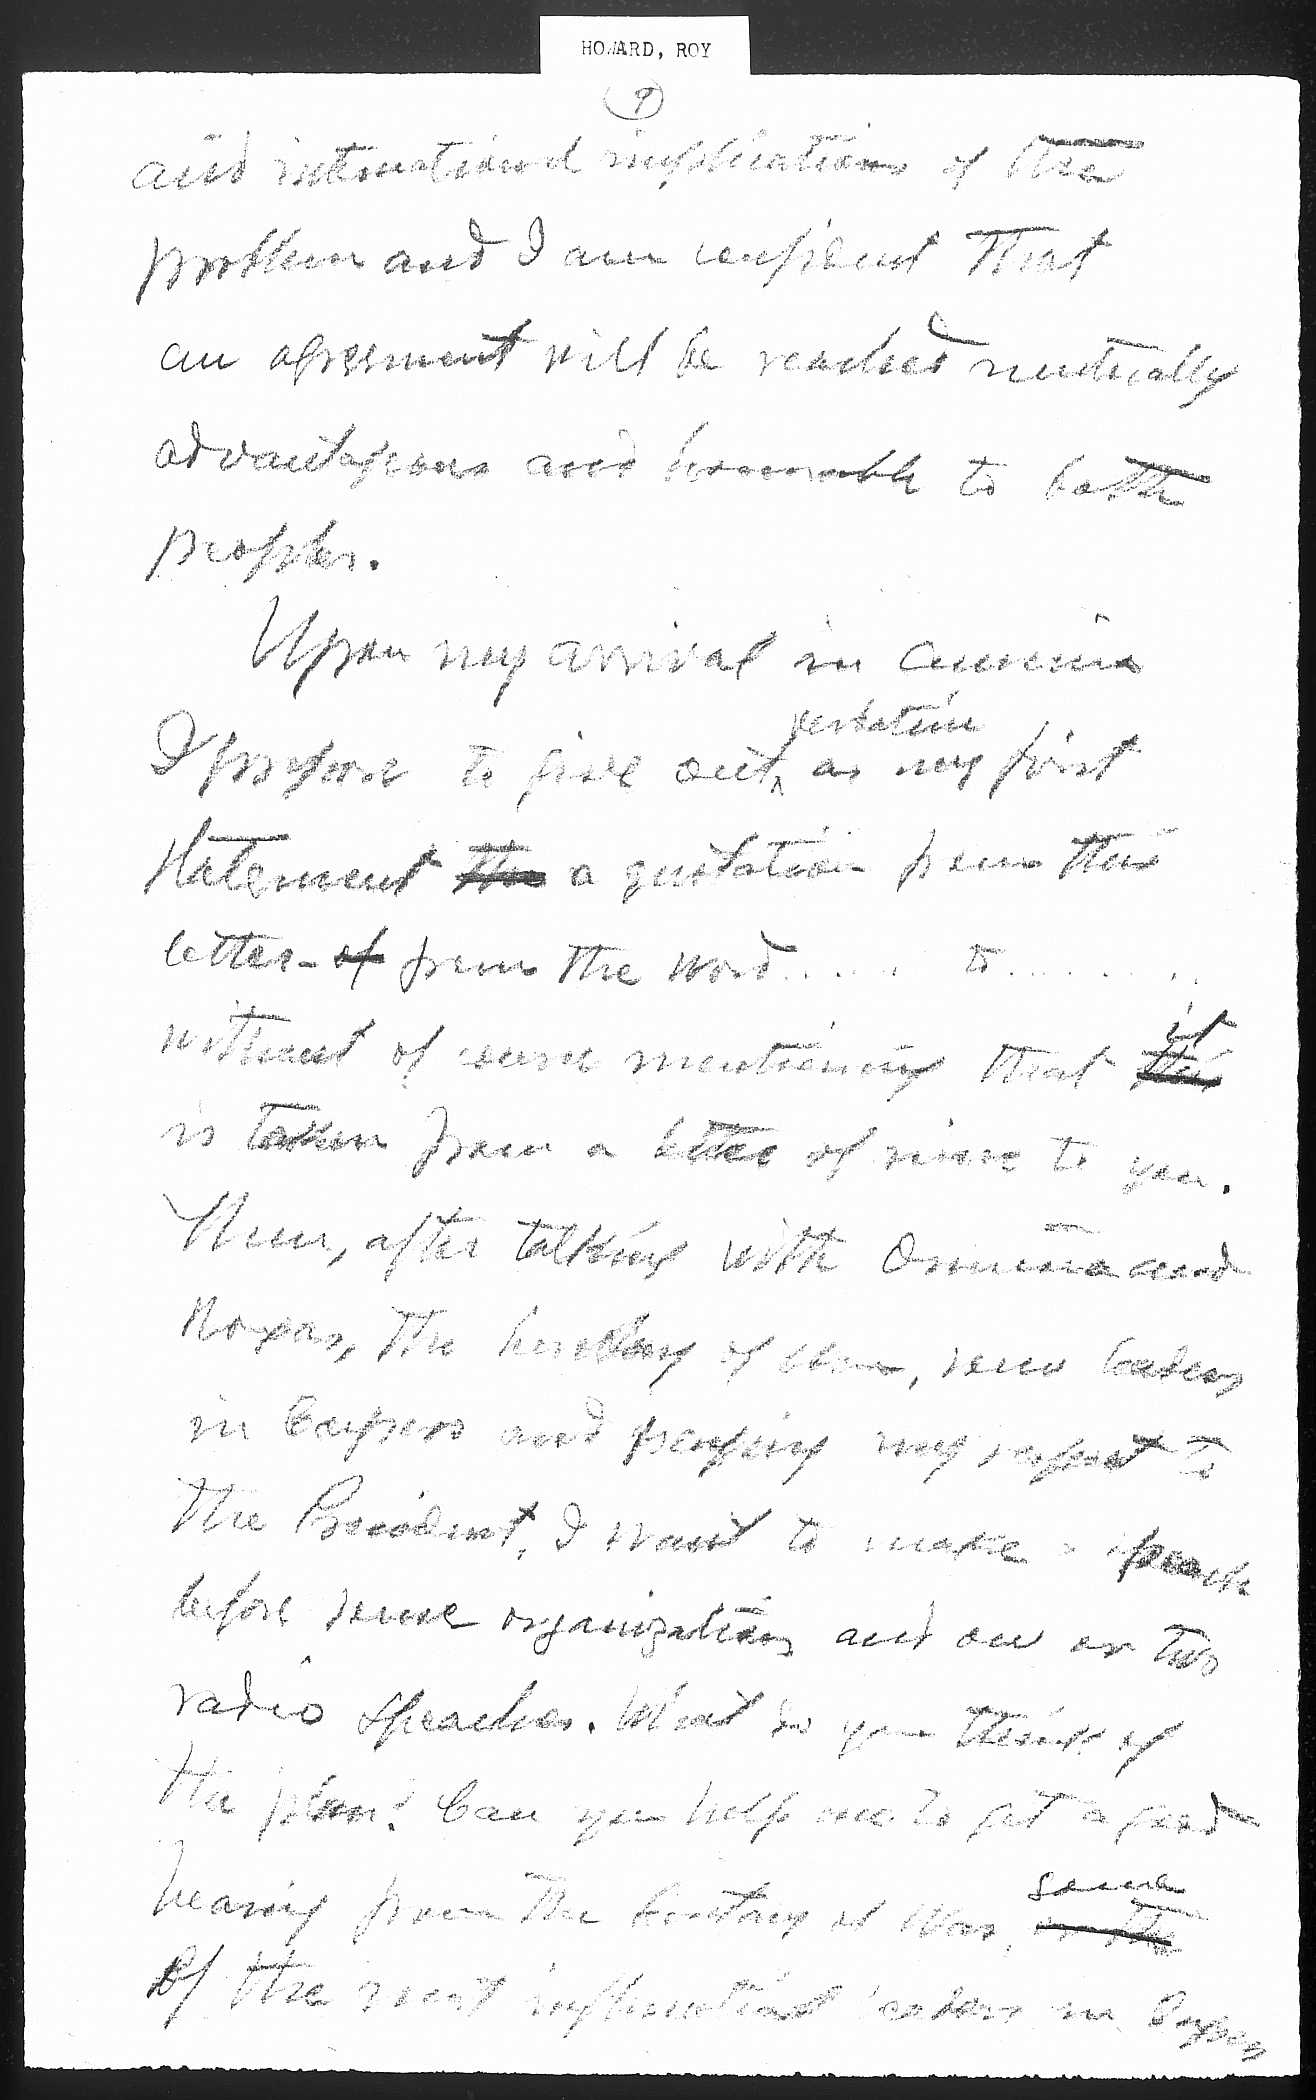 HOWARD, ROY
9
and international implications of the
problem and I am confident that
an agreement will be reached mutually
advantageous and honorable to both
peoples.
Upon my arrival in America
verbatim
I propose to give out as my first
statement the a quotation from this
letter - of from the word ...... to .........
it
without of course mentioning that this
is taken from a letter of mine to you.
Then, after talking with Osmeña and
Roxas, the Secretary of War, some leaders
in Congress and paying my respect to
the President, I want to make a speech
before some organizations and one or two
radio speeches. What do you think of
the plan? Can you help me to get a good
some
hearing from the Secretary of War, or the
of the most influential leaders in Congress